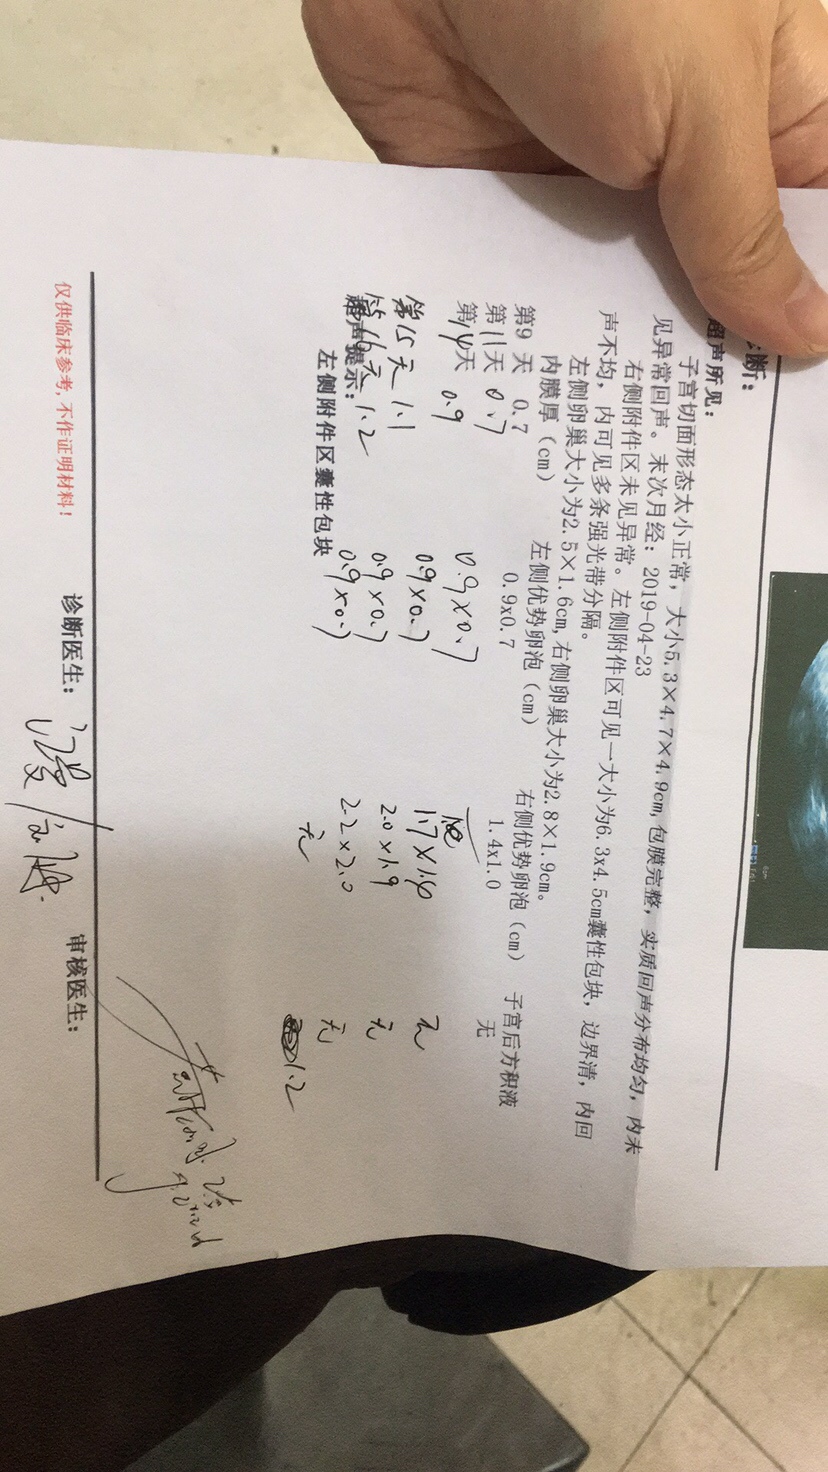 断：
超声所见：
子宫切面形态大小正常，大小5.3×4.7×4.9cm，包膜完整，实质回声分布均匀，内未
见异常回声。末次月经：2019-04-23
右侧附件区未见异常。左侧附件区可见一大小为6.3x4.5cm囊性包块，边界清，内回
声不均，内可见多条强光带分隔。
左侧卵巢大小为2.5×1.6cm,右侧卵巢大小为2.8×1.9cm。
内膜厚（cm） 左侧优势卵泡（cm） 右侧优势卵泡（cm） 子宫后方积液
第9 天 0.7 0.9x0.7 1.4x1.0 无
第11天 0.7 0.9×0.7
第14天 0.9 0.9×0.7 1.7×1.6 无
第15天 1.1 0.9×0.7 2.0×1.9 无
第16天 1.2 0.9×0.7 2.2×2.0 无
无 1.2
超声提示：
左侧附件区囊性包块
仅供临床参考，不作证明材料！ 诊断医生： 审核医生：